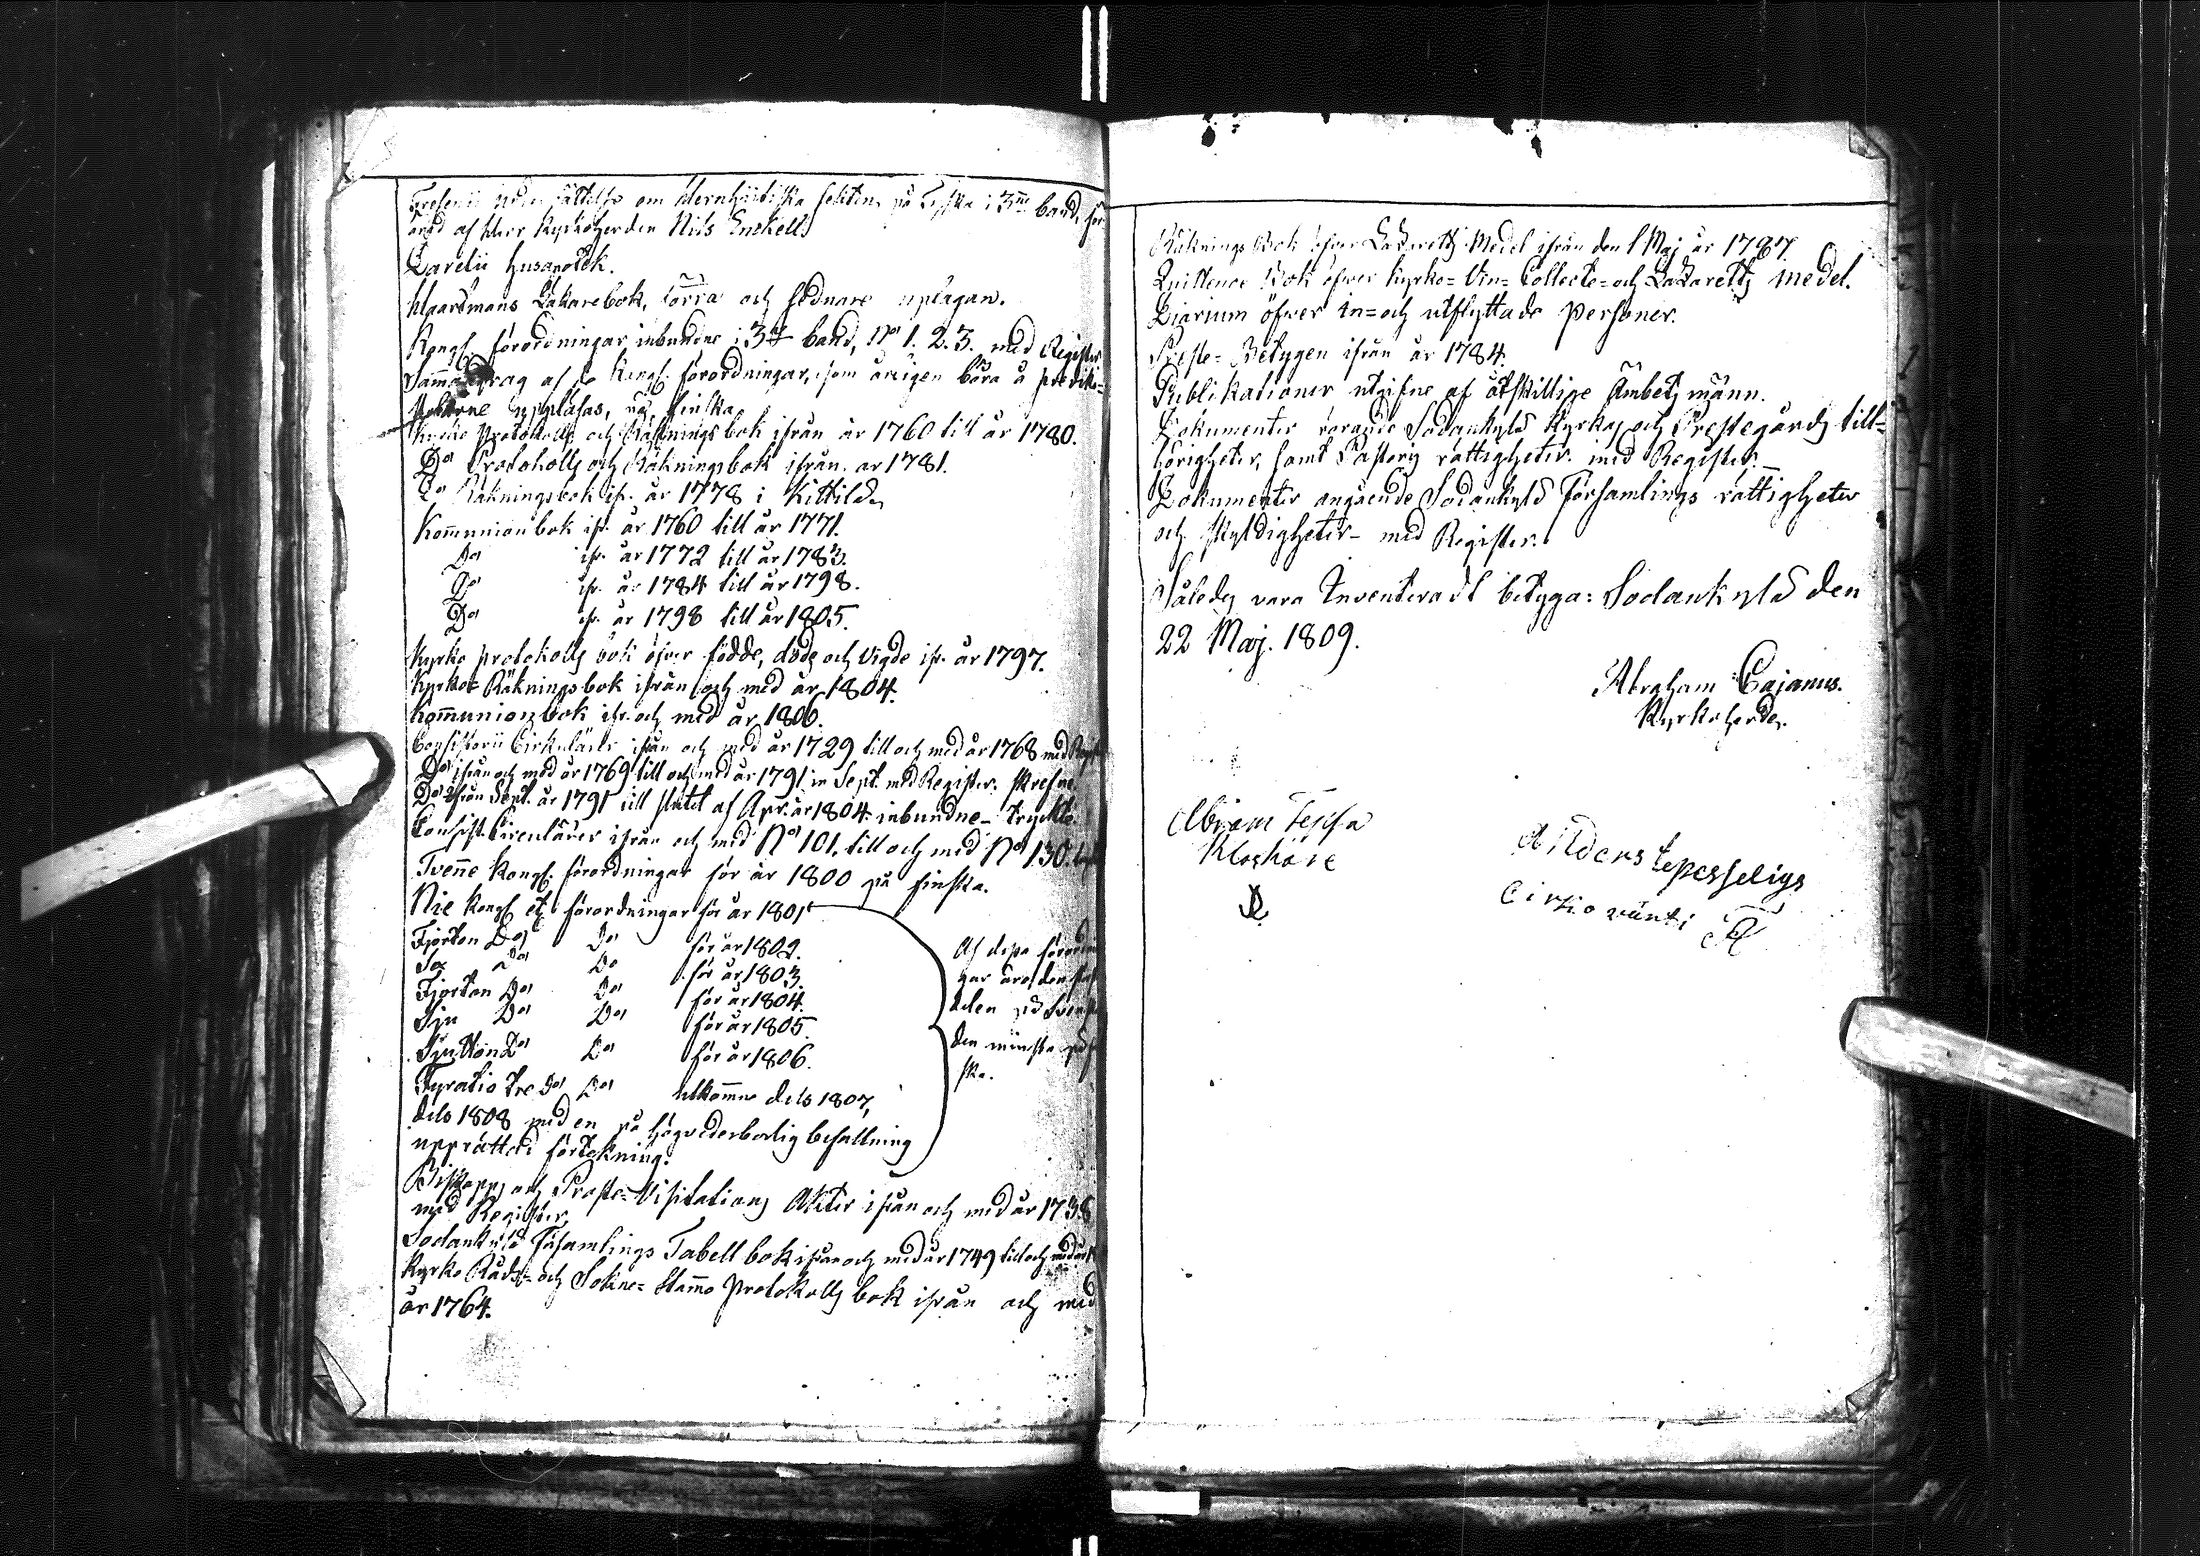 om Hernhutiska Secten på Tyska i 3ne band, för
ärad af Herr Kyrkoherden Nils Enckell.
Darelii Husapotek.
Haartmans Läkarebok, förra och sednare uplagan.
Kongl. förordningar inbundne i 3ne band, No 1. 2. 3. med Register
Sammandrag af de Kongl. förordningar, som årligen böra å prediko-
stolarne uppläsas, på finska
Kyrko Protokolls och Räkningsbok ifrån år 1760 till år 1780.
Do Protokolls och Räkningsbok ifrån år 1781.
Do Räkningsbok ifr. år 1778 i Kittilä
Kom̄unionbok ifr. år 1760 till år 1771.
Do ifr. år 1772 till år 1783.
Do ifr. år 1784 till år 1798.
Do ifr. år 1798 till år 1805.
Kyrko protokolls bok öfver födde, döde och Vigde ifr. år 1797.
Kyrko Räkningsbok ifrån och med år 1804.
Kom̄unionbok ifr. och med år 1806.
Consistorii Cirkulärer ifrån och med år 1729 till och med år 1768 med
Do ifrån och med år 1769 till och med år 1791 in Sept. med Register. skrefne.
Do ifrån Sept. år 1791 till slutet af Apr. år 1804 inbundne - tryckte.
Consist. Circulärer ifrån och med No 101. till och med No 130.
Tven̄e Kongl. förordningar för år 1800 på finska.
Nie Kongl. förordningar för år 1801
Fjorton Do Do för år 1802.
Sex Do Do för år 1803.
Fjorton Do Do för år 1804.
Sju Do Do för år 1805.
Sjutton Do Do för år 1806.
Fyratio tre Do Do utkom̄ne dels 1807,
dels 1808 med en på högvederbörlig befallning
upprättad förtekning.
Af dessa
gar äro den
delen på
den minsta på
ska.
Biskopps och Prosts-Visitations Akter ifrån och med år 1738
med Register
Sodankylä Församlings Tabell bok ifrån och med år 1749 till och med
Kyrko Råds- och Sokne-Stäm̄o Protokolls bok ifrån och med
år 1764.
Räknings Bok öfver Lazaretts Medel ifrån den 1 Maj år 1787.
Quittence Bok öfver Kyrko- Vin- Collecte- och Lazaretts medel.
Diarium öfver in- och utflyttade personer.
Preste-Betygen ifrån år 1784.
Publikationer utgifne af åtskillige Ämbetsmänn.
Dokumenter rörande Sodankylä Kyrkas och Prestegårds till-
hörigheter, samt Pastoris rättigheter. med Register.
Dokumenter angående Sodankylä Församlings rättigheter
och skyldigheter - med Register.
Således vara Inventeradt betyga: Sodankylä den
22 Maj. 1809.
Abraham Cajanus.
Kyrkoherde.
Abram